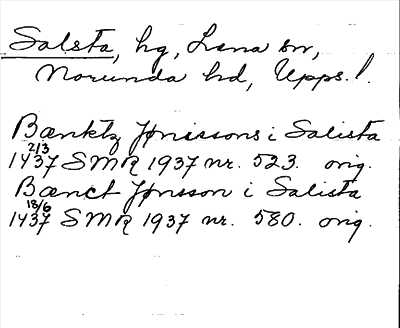 Salsta, hg, Lena sn,
Norunda hd, Upps. l.
Bænktz Jønissons i Salista
2/3
1437 SMR 1937 nr. 523. orig.
Bænct Jønsson i Salista
18/6
1437 SMR 1937 nr. 580. orig.